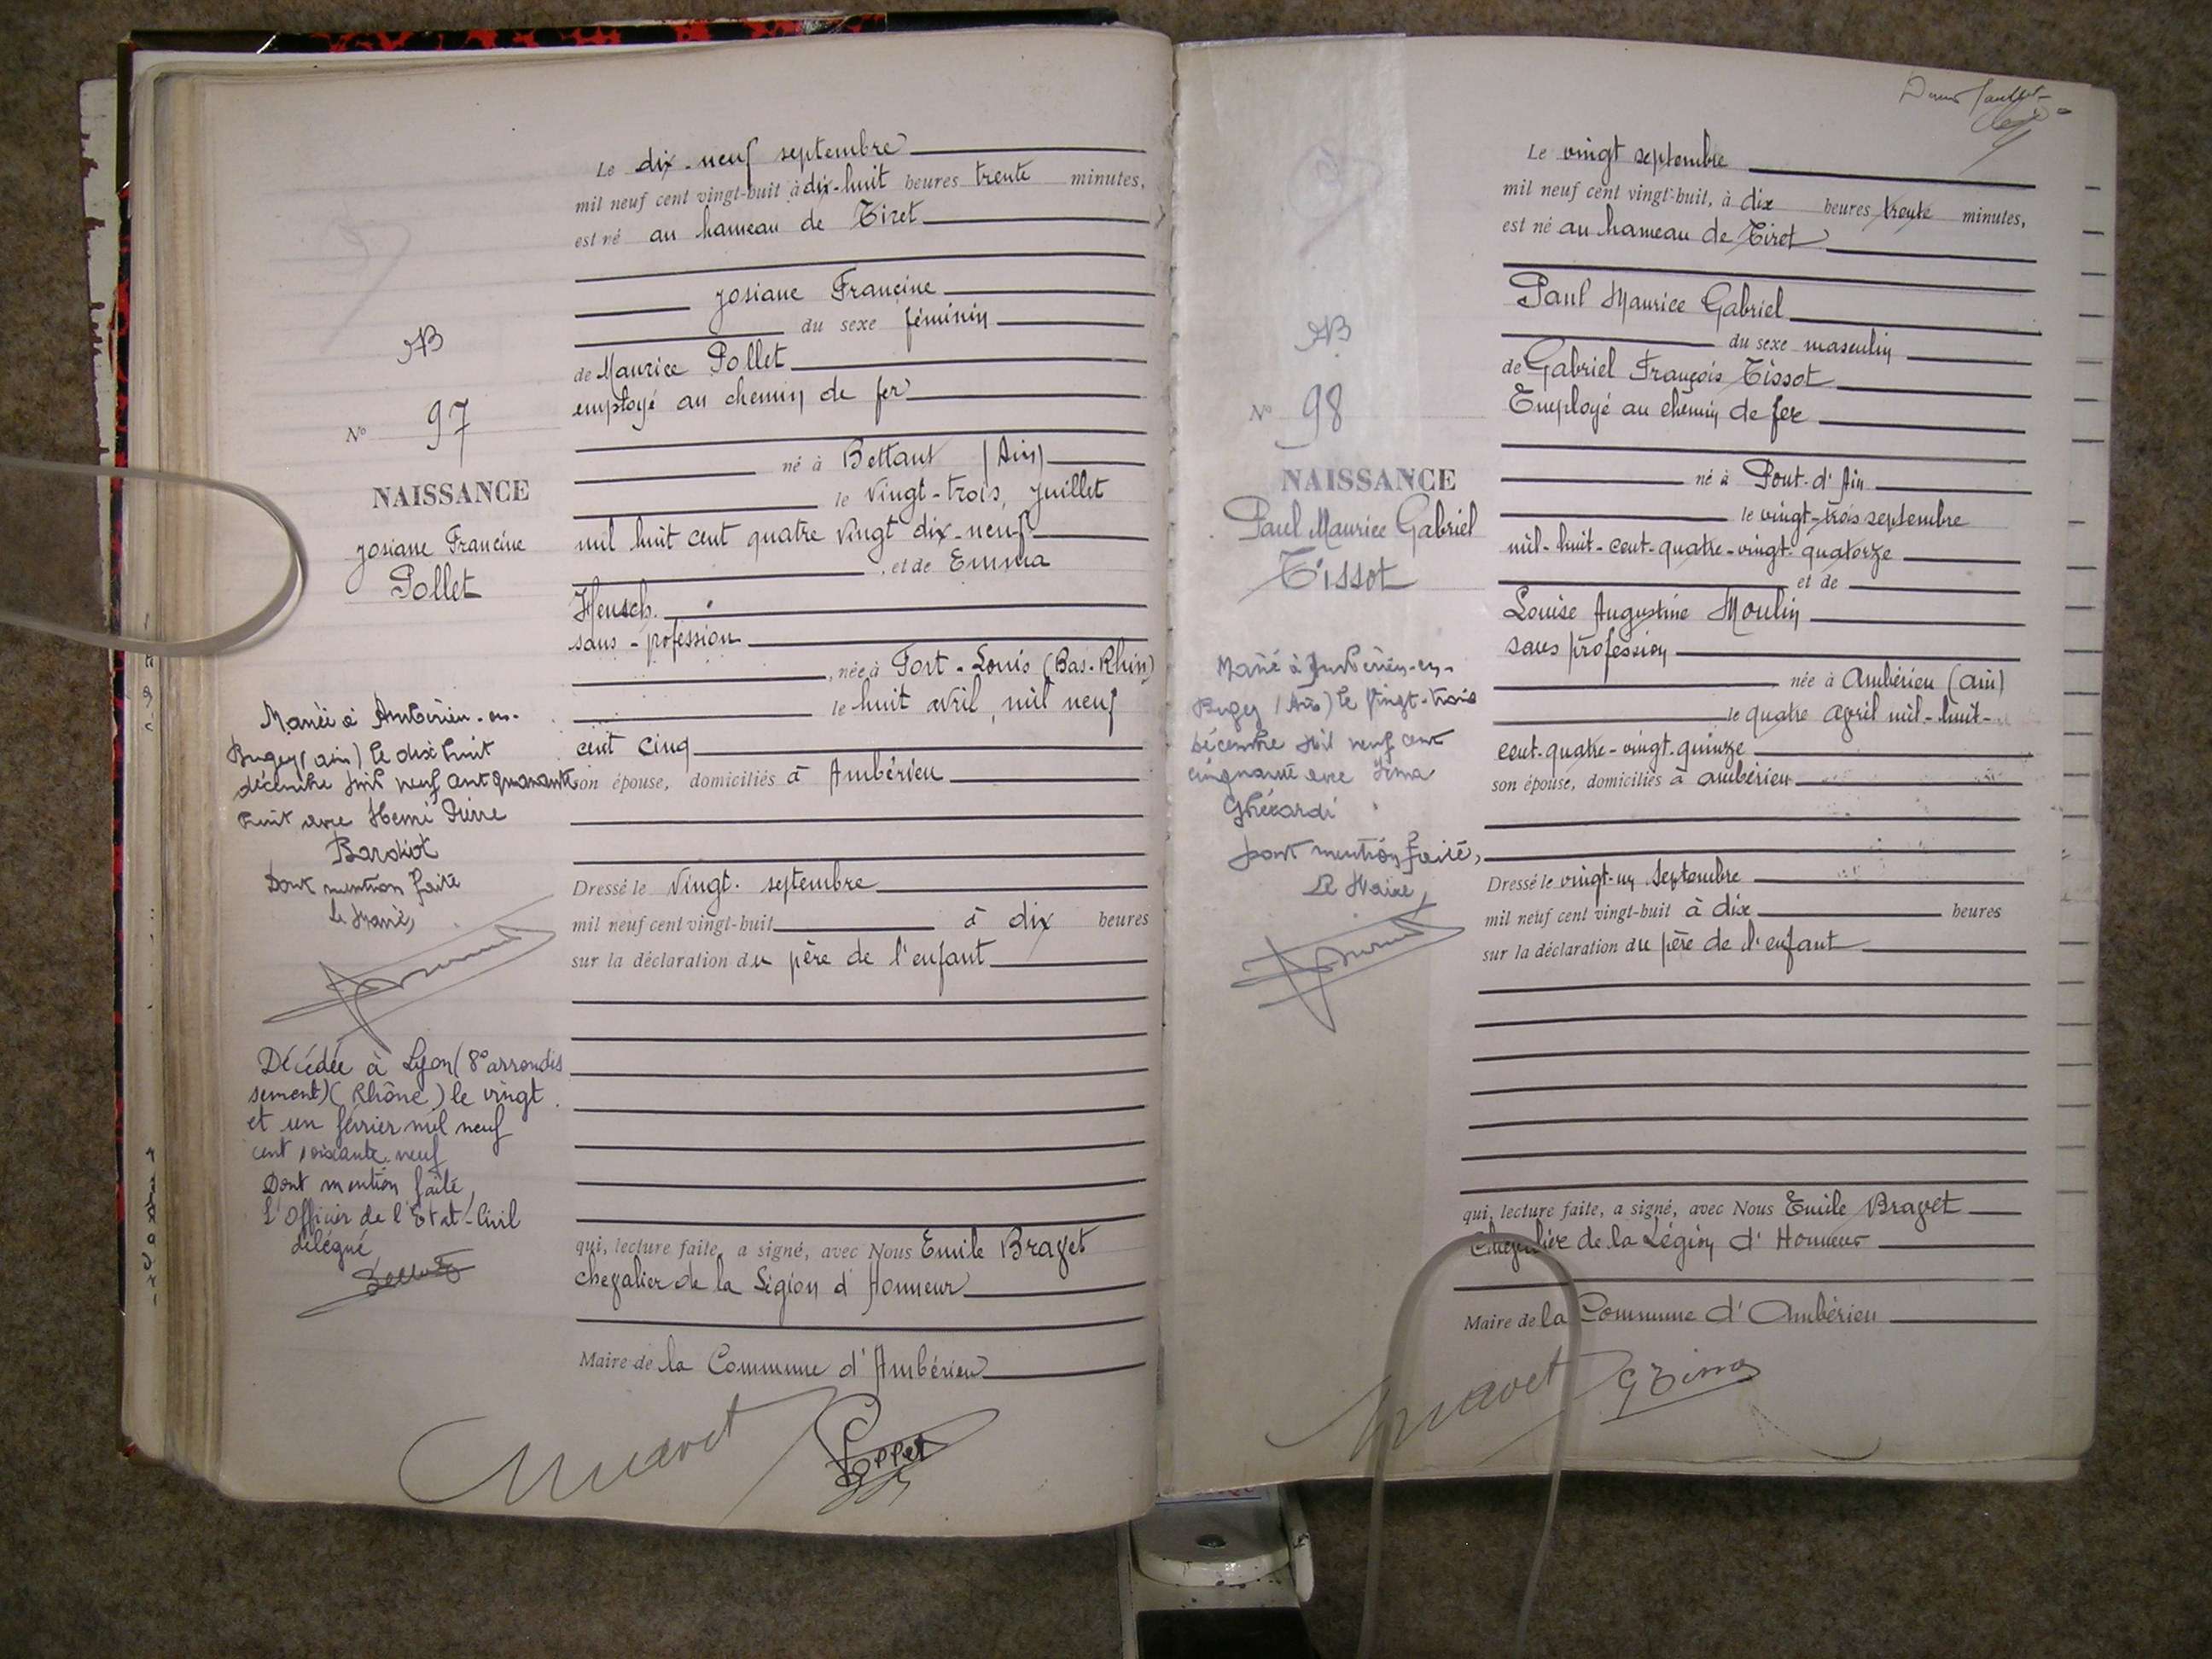 AB
N° 97
NAISSANCE
Josiane Francine
Pollet
Mariée à Ambérieu-en-
Bugey (Ain) le dix huit
décembre mil neuf cent quarante
huit avec Henri Pierre
Dont mention faite
Le Maire,
Décédée à Lyon (8e arrondis
sement) (Rhône) le vingt
et un février mil neuf
cent soixante neuf
Dont mention faite,
L'Officier de l'Etat-Civil
délégué
Le dix-neuf septembre
mil neuf cent vingt-huit à dix-huit heures trente minutes,
est né au hameau de Tiret
Josiane Francine
du sexe féminin
de Maurice Pollet
employé au chemin de fer
né à Bettant (Ain)
le vingt-trois, juillet
mil huit cent quatre vingt dix-neuf
, et de Emma
Heusch.
sans-profession
, née à Fort-Louis (Bas-Rhin)
le huit avril, mil neuf
cent cinq
son épouse, domiciliés à Ambérieu
Dressé le vingt. septembre
mil neuf cent vingt-huit à dix heures
sur la déclaration du père de l'enfant
qui, lecture faite, a signé, avec Nous Emile Bravet
chevalier de la Légion d'Honneur
Maire de la Commune d'Ambérieu
Bravet
AB
N° 98
NAISSANCE
Paul Maurice Gabriel
Tissot
Marié à Ambérieu-en-
Bugey (Ain) le vingt-trois
décembre mil neuf cent
cinquante avec Irma
Ghérardi
Dont mention faite,
Le Maire,
Le vingt septembre
mil neuf cent vingt-huit, à dix heures trente minutes,
est né au hameau de Tiret
Paul Maurice Gabriel
du sexe masculin
de Gabriel François Tissot
Employé au chemin de fer
né à Pont-d'Ain
le vingt-trois septembre
mil-huit-cent-quatre-vingt-quatorze
et de
Louise Augustine Moulin
sans profession
née à Ambérieu (ain)
le quatre avril mil-huit-
cent-quatre-vingt-quinze
son épouse, domiciliés à ambérieu
Dressé le vingt-un septembre
mil neuf cent vingt-huit à dix heures
sur la déclaration du père de l'enfant
qui, lecture faite, a signé, avec Nous Emile Bravet
Chevalier de la Légion d'Honneur
Maire de la Commune d'Ambérieu
Bravet G Tissot